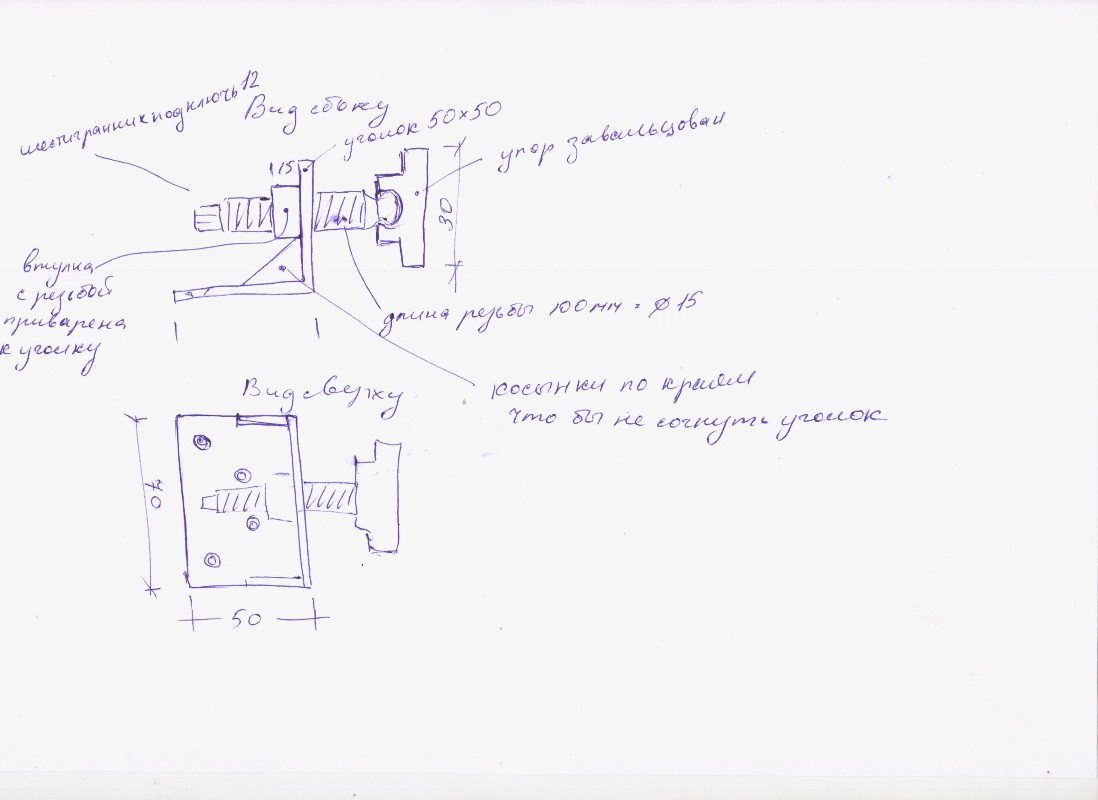 шестигранник под ключь 12
Вид сбоку
уголок 50×50
упор завальцован
15
30
втулка
с резьбой
приварена
к уголку
длина резьбы 100мм. ⌀15
косынки по краям
что бы не согнуть уголок
Вид сверху
70
50